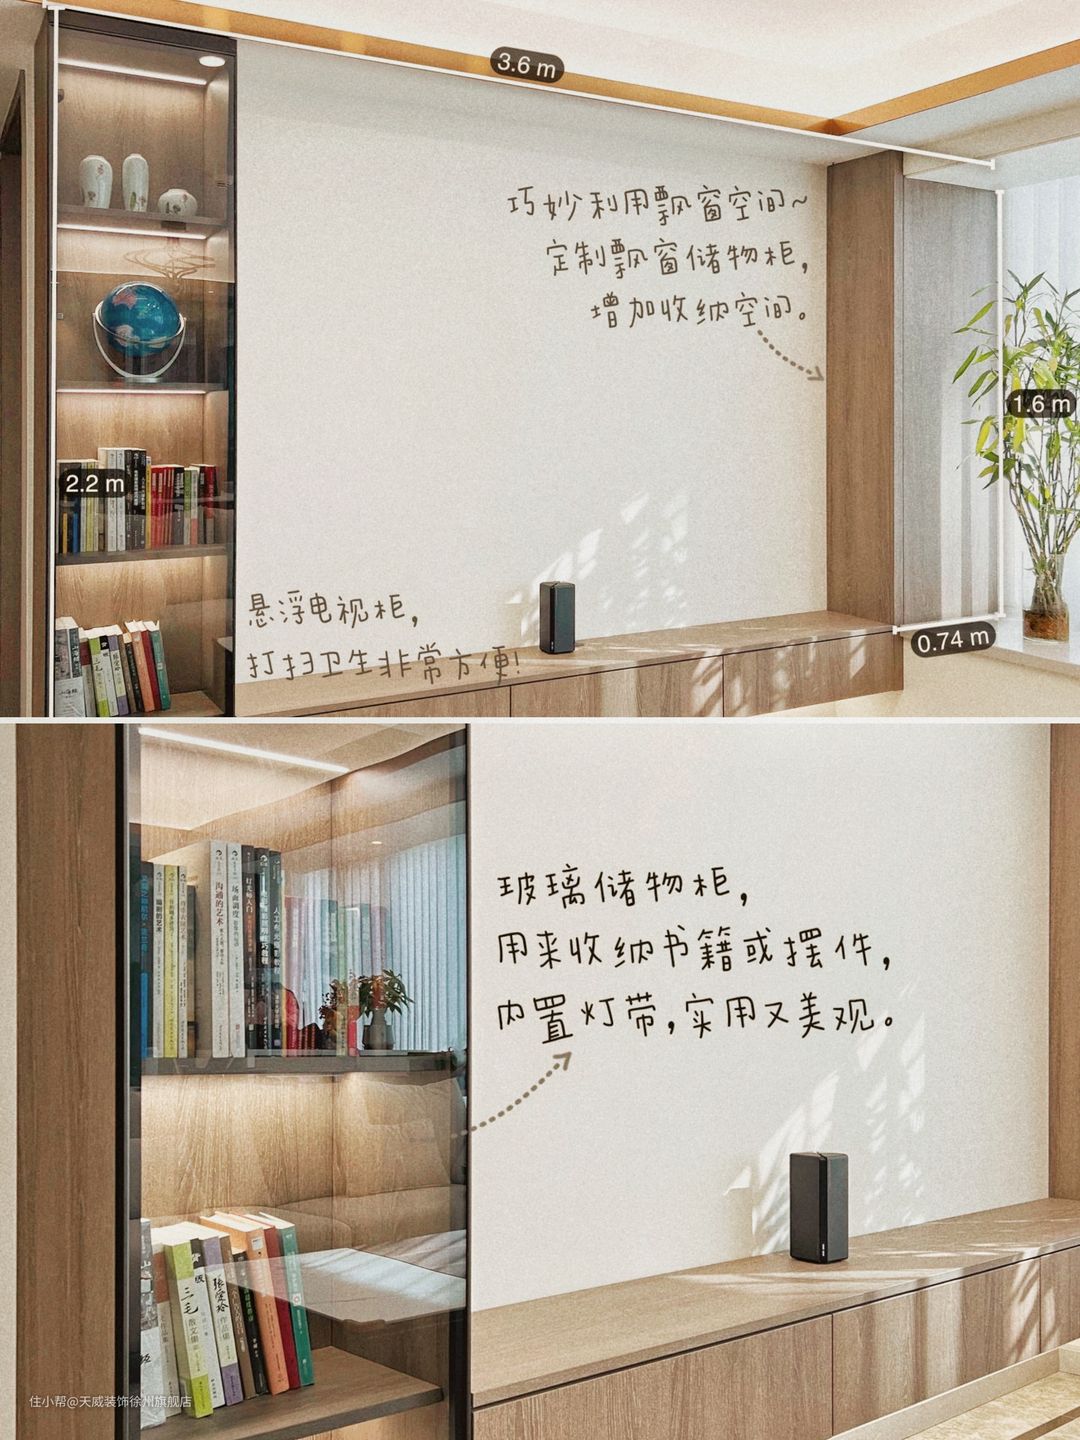 3.6 m
巧妙利用飘窗空间~
定制飘窗储物柜,
增加收纳空间。
1.6 m
2.2 m
悬浮电视柜,
打扫卫生非常方便!
0.74 m
玻璃储物柜,
用来收纳书籍或摆件,
内置灯带,实用又美观。
沟通的艺术
场面调度
三毛
散文集
张爱玲
作品集
住小帮@天威装饰徐州旗舰店